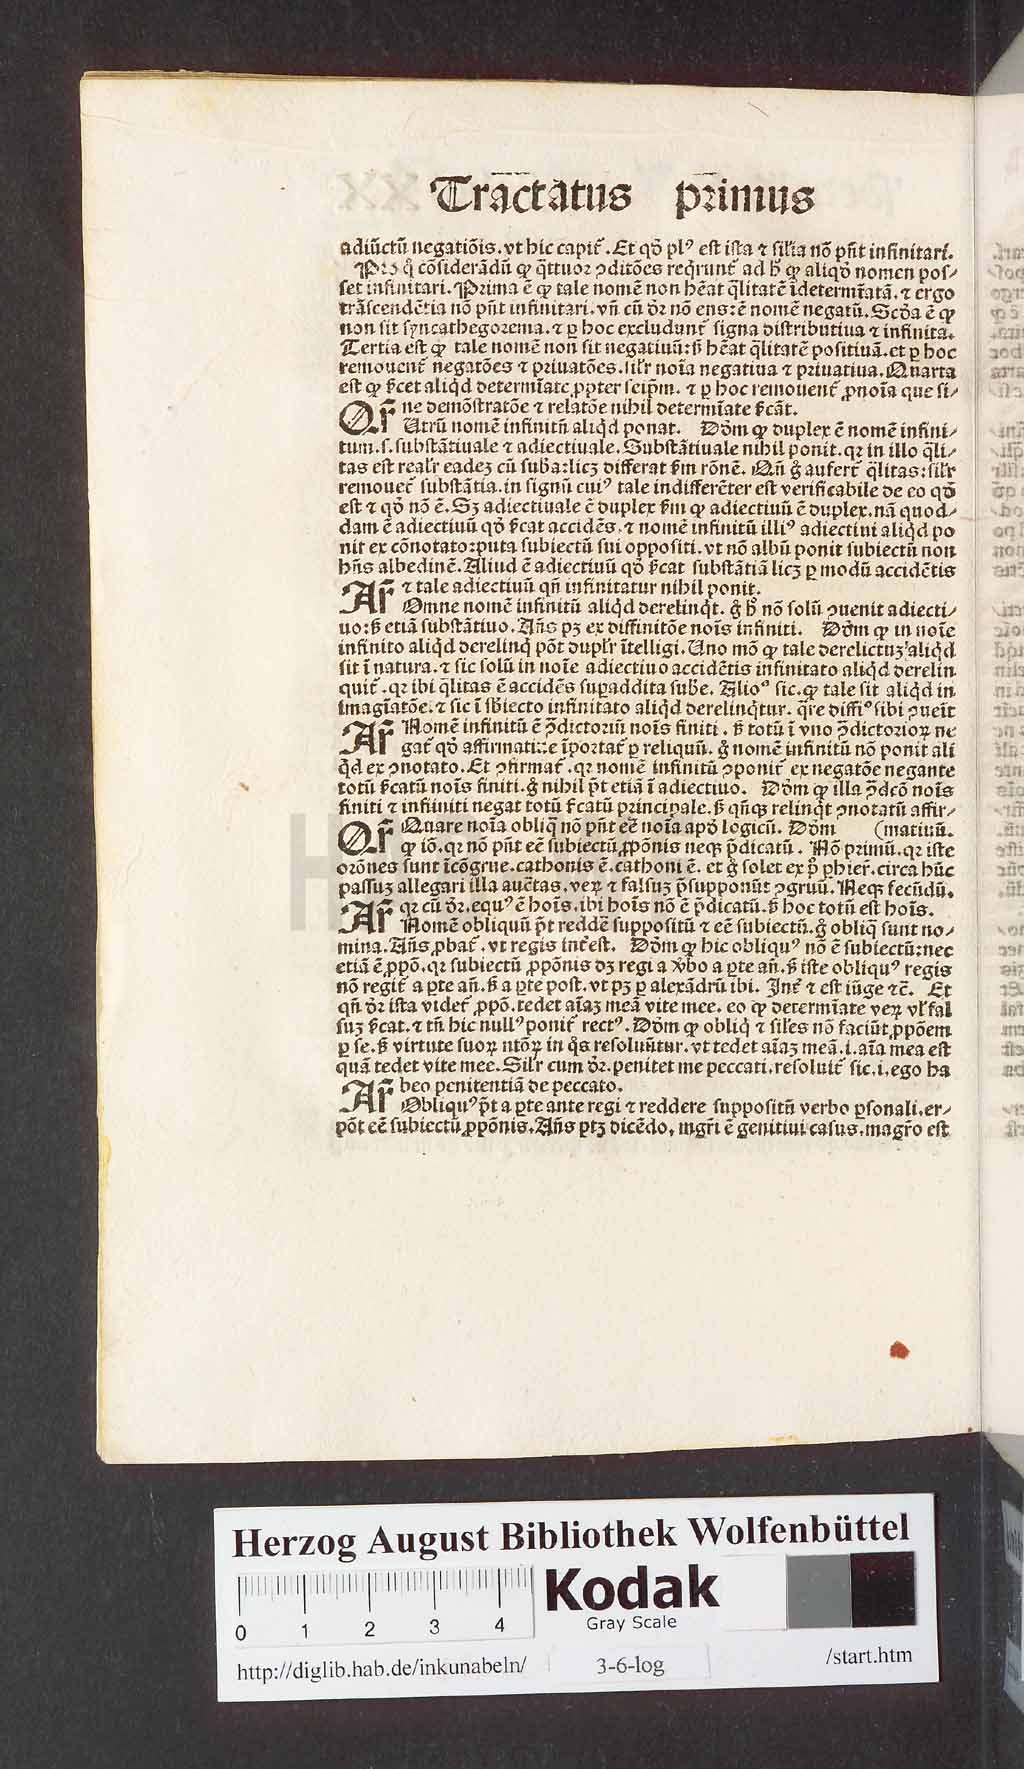 Tractatus primus
adiūctū negatiōis. vt hic capit᷑. Et qd̓ plꝰ est ista ⁊ sil̓ia nō pn̄t infinitari.
cōsiderādū ꝙ q̄ttuor ꝯditōes reqrunt᷑ ad h̓ ꝙ aliqd̓ nomen pos⸗
set infinitari. Prima ē ꝙ tale nomē non hēat q̄litatē īdetermīatā. ⁊ ergo
trāscendētia nō pn̄t infinitari. vn̄ cū dr̄ nō ens: ē nomē negatū. Scd̓a ē ꝙ
non sit syncathegorema. ⁊ ꝑ hoc excludunt᷑ signa distributiua ⁊ infinita.
Tertia est ꝙ tale nomē non sit negatiuū: sꝫ hēat q̄litatē positiuā. et ꝑ hoc
remouent᷑ negatōes ⁊ priuatōes. sil̓r noīa negatiua ⁊ priuatiua. Quarta
est ꝙ s̄cet aliqd determīate ꝓpter seip̄m. ⁊ ꝑ hoc remouent᷑ ꝓnoīa que si⸗
ne demōstratōe ⁊ relatōe nihil determīate s̄cāt.
Qr̄ Utrū nomē infinitū aliqd ponat. Dd̓m ꝙ duplex ē nomē infini⸗
tum. s. substātiuale ⁊ adiectiuale. Substātiuale nihil ponit. qr in illo q̄li⸗
tas est real̓r eadeꝫ cū suba: licꝫ differat s̄m rōnē. Qn̄ g̊ aufert᷑ q̄litas: sil̓r
remouet᷑ substātia. in signū cuiꝰ tale indifferēter est verificabile de eo qd̓
est ⁊ qd̓ nō ē. Sꝫ adiectiuale ē duplex s̄m ꝙ adiectiuū ē duplex. nā quod⸗
dam ē adiectiuū qd̓ s̄cat accidēs. ⁊ nomē infinitū illiꝰ adiectiui aliqd po
nit ex cōnotato: puta subiectū sui oppositi. vt nō albū ponit subiectū non
hn̄s albedinē. Aliud ē adiectiuū qd̓ s̄cat substātiā licꝫ ꝑ modū accidētis
⁊ tale adiectiuū qn̄ infinitatur nihil ponit.
Ar̄ Omne nomē infinitū aliqd derelinqt. g̊ h̓ nō solū ꝯuenit adiecti⸗
uo: sꝫ etiā substātiuo. Ān̄s pꝫ ex diffinitōe noīs infiniti. Dd̓m ꝙ in noīe
infinito aliqd derelinq pōt dupl̓r ītelligi. Uno mō ꝙ tale derelictuꝫ aliqd
sit ī natura. ⁊ sic solū in noīe adiectiuo accidētis infinitato aliqd derelin
quit᷑. qr ibi q̄litas ē accidēs supaddita sube. Alioº sic. ꝙ tale sit aliqd in
imagīatōe. ⁊ sic ī sb̓iecto infinitato aliqd derelinqtur. q̄re diffiº sibi ꝯueīt
Ar̄ Nomē infinitū ē ꝑdictoriū noīs finiti. sꝫ totū ī vno ꝑdictorioꝝ ne
gat᷑ qd̓ affirmatiue īportat᷑ ꝑ reliquū. g̊ nomē infinitū nō ponit ali
qd ex ꝯnotato. Et ꝯfirmat᷑. qr nomē infinitū ꝯponit᷑ ex negatōe negante
totū s̄catū noīs finiti. g̊ nihil pn̄t etiā ī adiectiuo. Dd̓m ꝙ illa ꝑdcō noīs
finiti ⁊ infiniti negat totū s̄catū principale. sꝫ qn̄qꝫ relinqt ꝯnotatū affir⸗
Qr̄ Quare noīa obliq nō pn̄t eē noīa apd̓ logicū. Dd̓m (matiuū.
ꝙ iō. qr nō pn̄t eē subiectū ꝓpōnis neqꝫ p̄dicatū. Nō primū. qr iste
orōnes sunt īcōgrue. cathonis ē. cathoni ē. et g̊ solet ex p̊ phier̄. circa hūc
passuꝫ allegari illa auc̄tas. veꝝ ⁊ falsuꝫ p̄supponūt ꝯgruū. Neqꝫ secūdū.
qr cū dr̄. equꝰ ē hoīs. ibi hoīs nō ē p̄dicatū. sꝫ hoc totū est hoīs.
Ar̄ Nomē obliquū pn̄t reddē suppositū ⁊ eē subiectū. g̊ obliq sunt no⸗
mina. Ān̄s ꝓbat᷑. vt regis int̄est. Dd̓m ꝙ hic obliquꝰ nō ē subiectū: nec
etiā ē ꝓpō. qr subiectū ꝓpōnis dꝫ regi a v̓bo a ꝑte an̄. sꝫ iste obliquꝰ regis
nō regit᷑ a ꝑte an̄. sꝫ a ꝑte post. vt pꝫ ꝑ alexādrū ibi. Int̄ ⁊ est iūge ⁊c̄. Et
qn̄ dr̄ ista videt᷑ ꝓpō. tedet aīaꝫ meā vite mee. eo ꝙ determīate veꝝ vl̓ fal
suꝫ s̄cat. ⁊ tn̄ hic nullꝰ ponit᷑ rectꝰ. Dd̓m ꝙ obliq ⁊ sil̓es nō faciūt ꝓpōem
ꝑ se. sꝫ virtute suoꝝ ntōꝝ in qs resoluūtur. vt tedet aīaꝫ meā. i. aīa mea est
quā tedet vite mee. Sil̓r cum dr̄. penitet me peccati. resoluit᷑ sic. i. ego ha
beo penitentiā de peccato.
Ar̄ Obliquꝰ pn̄t a ꝑte ante regi ⁊ reddere suppositū verbo ꝑsonali. er⸗
pōt eē subiectū ꝓpōnis. Ān̄s ptꝫ dicēdo. mgr̄i ē genitiui casus. magr̄o est
Herzog August Bibliothek Wolfenbüttel
Kodak
Gray Scale
0 1 2 3 4
http://diglib.hab.de/inkunabeln/ 3-6-log /start.htm